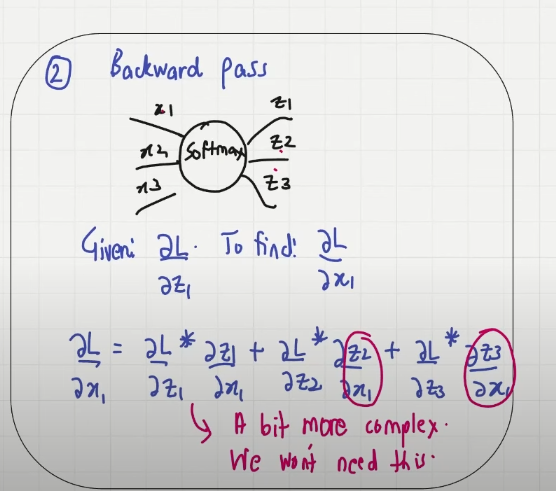 ② Backward pass
x1 z1
x2 Softmax z2
x3 z3
Given: ∂L/∂z₁. To find: ∂L/∂x₁
∂L/∂x₁ = ∂L/∂z₁ * ∂z1/∂x₁ + ∂L/∂z₂ * ∂z2/∂x₁ + ∂L/∂z₃ * ∂z3/∂x₁
A bit more complex.
We won't need this.